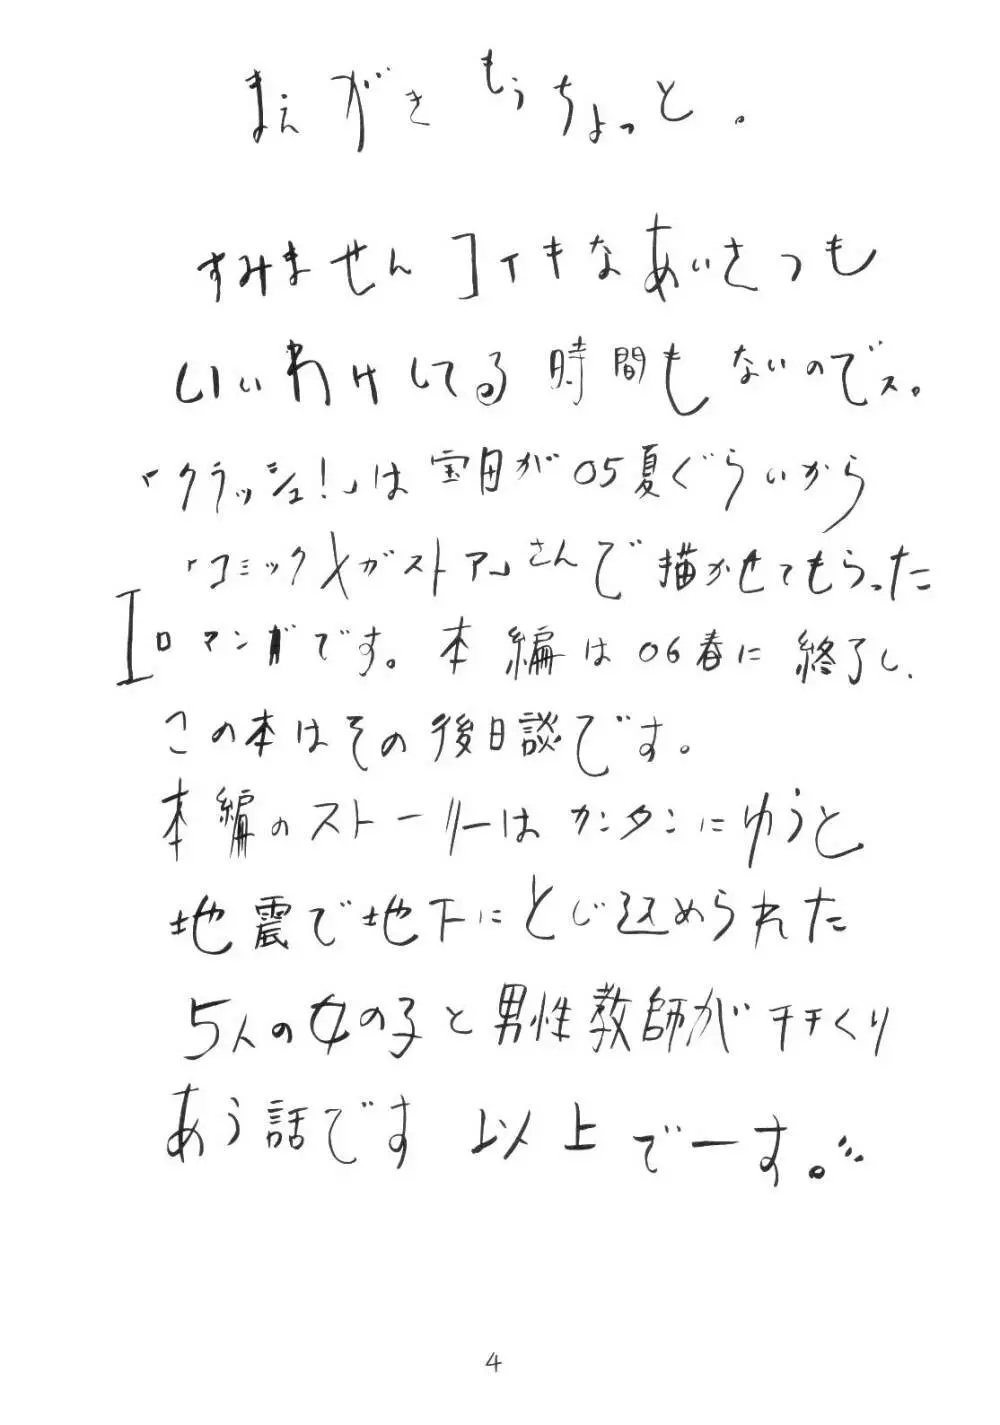 まえがき もうちょっと。
すみません コイキなあいさつも
いいわけしてる時間もないのでス。
「クラッシュ!」は宝田が05夏ぐらいから
「コミックメガストア」さんで描かせてもらった
エロマンガです。本編は06春に終了し、
この本はその後日談です。
本編のストーリーはカンタンにゆうと
地震で地下にとじ込められた
5人の女の子と男性教師がチチくり
あう話です 以上でーす。
4